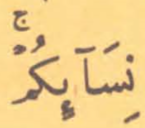 نِسَآئِكُمْ ۚ